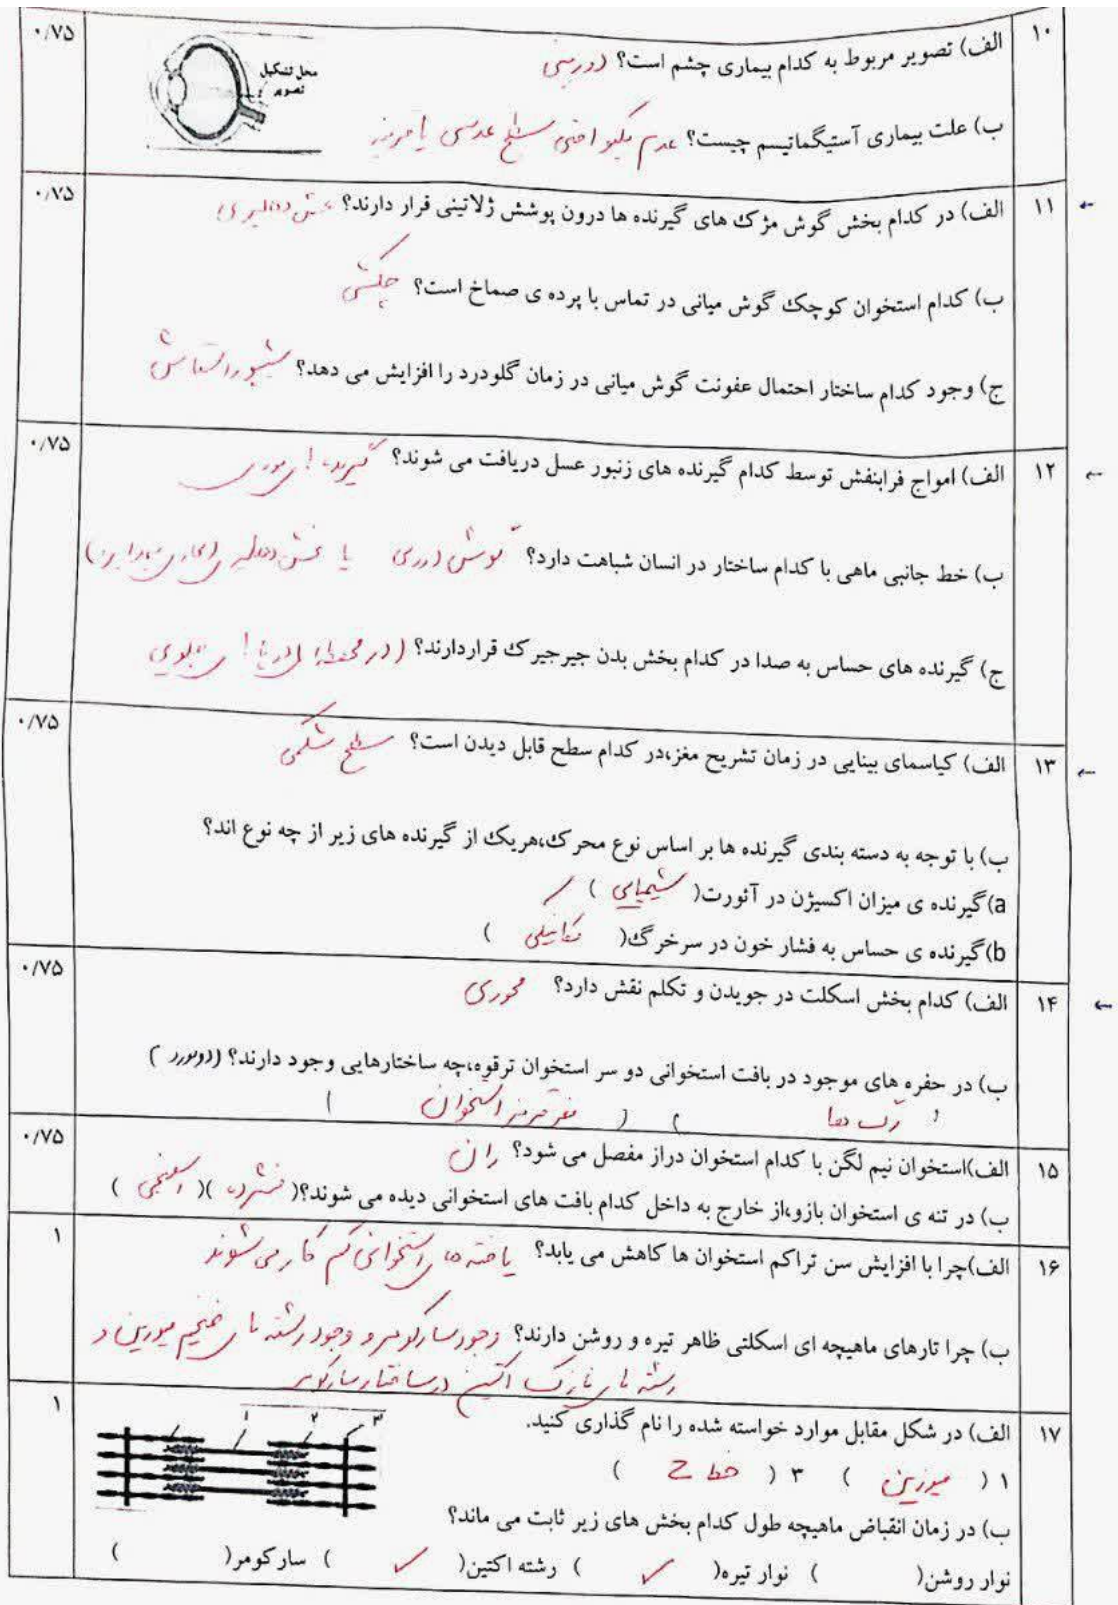 ۱۰ الف) تصویر مربوط به کدام بیماری چشم است؟ (دوربینی) ۰/۷۵
محل تشکیل
تصویر
ب) علت بیماری آستیگماتیسم چیست؟ عدم یکنواختی سطح عدسی یا قرنیه
۱۱ الف) در کدام بخش گوش مژک های گیرنده ها درون پوشش ژلاتینی قرار دارند؟ بخش دهلیزی ۰/۷۵
ب) کدام استخوان کوچک گوش میانی در تماس با پرده ی صماخ است؟ چکشی
ج) وجود کدام ساختار احتمال عفونت گوش میانی در زمان گلودرد را افزایش می دهد؟ شیپور استاش
۱۲ الف) امواج فرابنفش توسط کدام گیرنده های زنبور عسل دریافت می شوند؟ گیرنده های نوری ۰/۷۵
ب) خط جانبی ماهی با کدام ساختار در انسان شباهت دارد؟ گوش درونی یا بخش دهلیزی
ج) گیرنده های حساس به صدا در کدام بخش بدن جیرجیرک قراردارند؟ (در محفظه های در پاهای جلویی
۱۳ الف) کیاسمای بینایی در زمان تشریح مغز،در کدام سطح قابل دیدن است؟ سطح شکمی ۰/۷۵
ب) با توجه به دسته بندی گیرنده ها بر اساس نوع محرک،هریک از گیرنده های زیر از چه نوع اند؟
a)گیرنده ی میزان اکسیژن در آئورت( شیمیایی )
b)گیرنده ی حساس به فشار خون در سرخرگ( مکانیکی )
۱۴ الف) کدام بخش اسکلت در جویدن و تکلم نقش دارد؟ محوری ۰/۷۵
ب) در حفره های موجود در بافت استخوانی دو سر استخوان ترقوه،چه ساختارهایی وجود دارند؟ (دومورد )
( رگ ها ) ( مغز قرمز استخوان )
۱۵ الف)استخوان نیم لگن با کدام استخوان دراز مفصل می شود؟ ران ۰/۷۵
ب) در تنه ی استخوان بازو،از خارج به داخل کدام بافت های استخوانی دیده می شوند؟( فشرده )( اسفنجی )
۱۶ الف)چرا با افزایش سن تراکم استخوان ها کاهش می یابد؟ یاخته های استخوانی کم کار می شوند ۱
ب) چرا تارهای ماهیچه ای اسکلتی ظاهر تیره و روشن دارند؟ وجود سارکومر و وجود رشته های ضخیم میوزین و
رشته های نازک اکتین در ساختار سارکومر
۱۷ الف) در شکل مقابل موارد خواسته شده را نام گذاری کنید. ۱
۱ ۲ ۳
۱ ( میوزین ) ۳ ( خط Z )
ب) در زمان انقباض ماهیچه طول کدام بخش های زیر ثابت می ماند؟
نوار روشن( ) نوار تیره( ✓ ) رشته اکتین( ✓ ) سارکومر( )